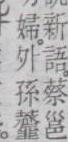 新語。蔡邕
婦。外孫虀